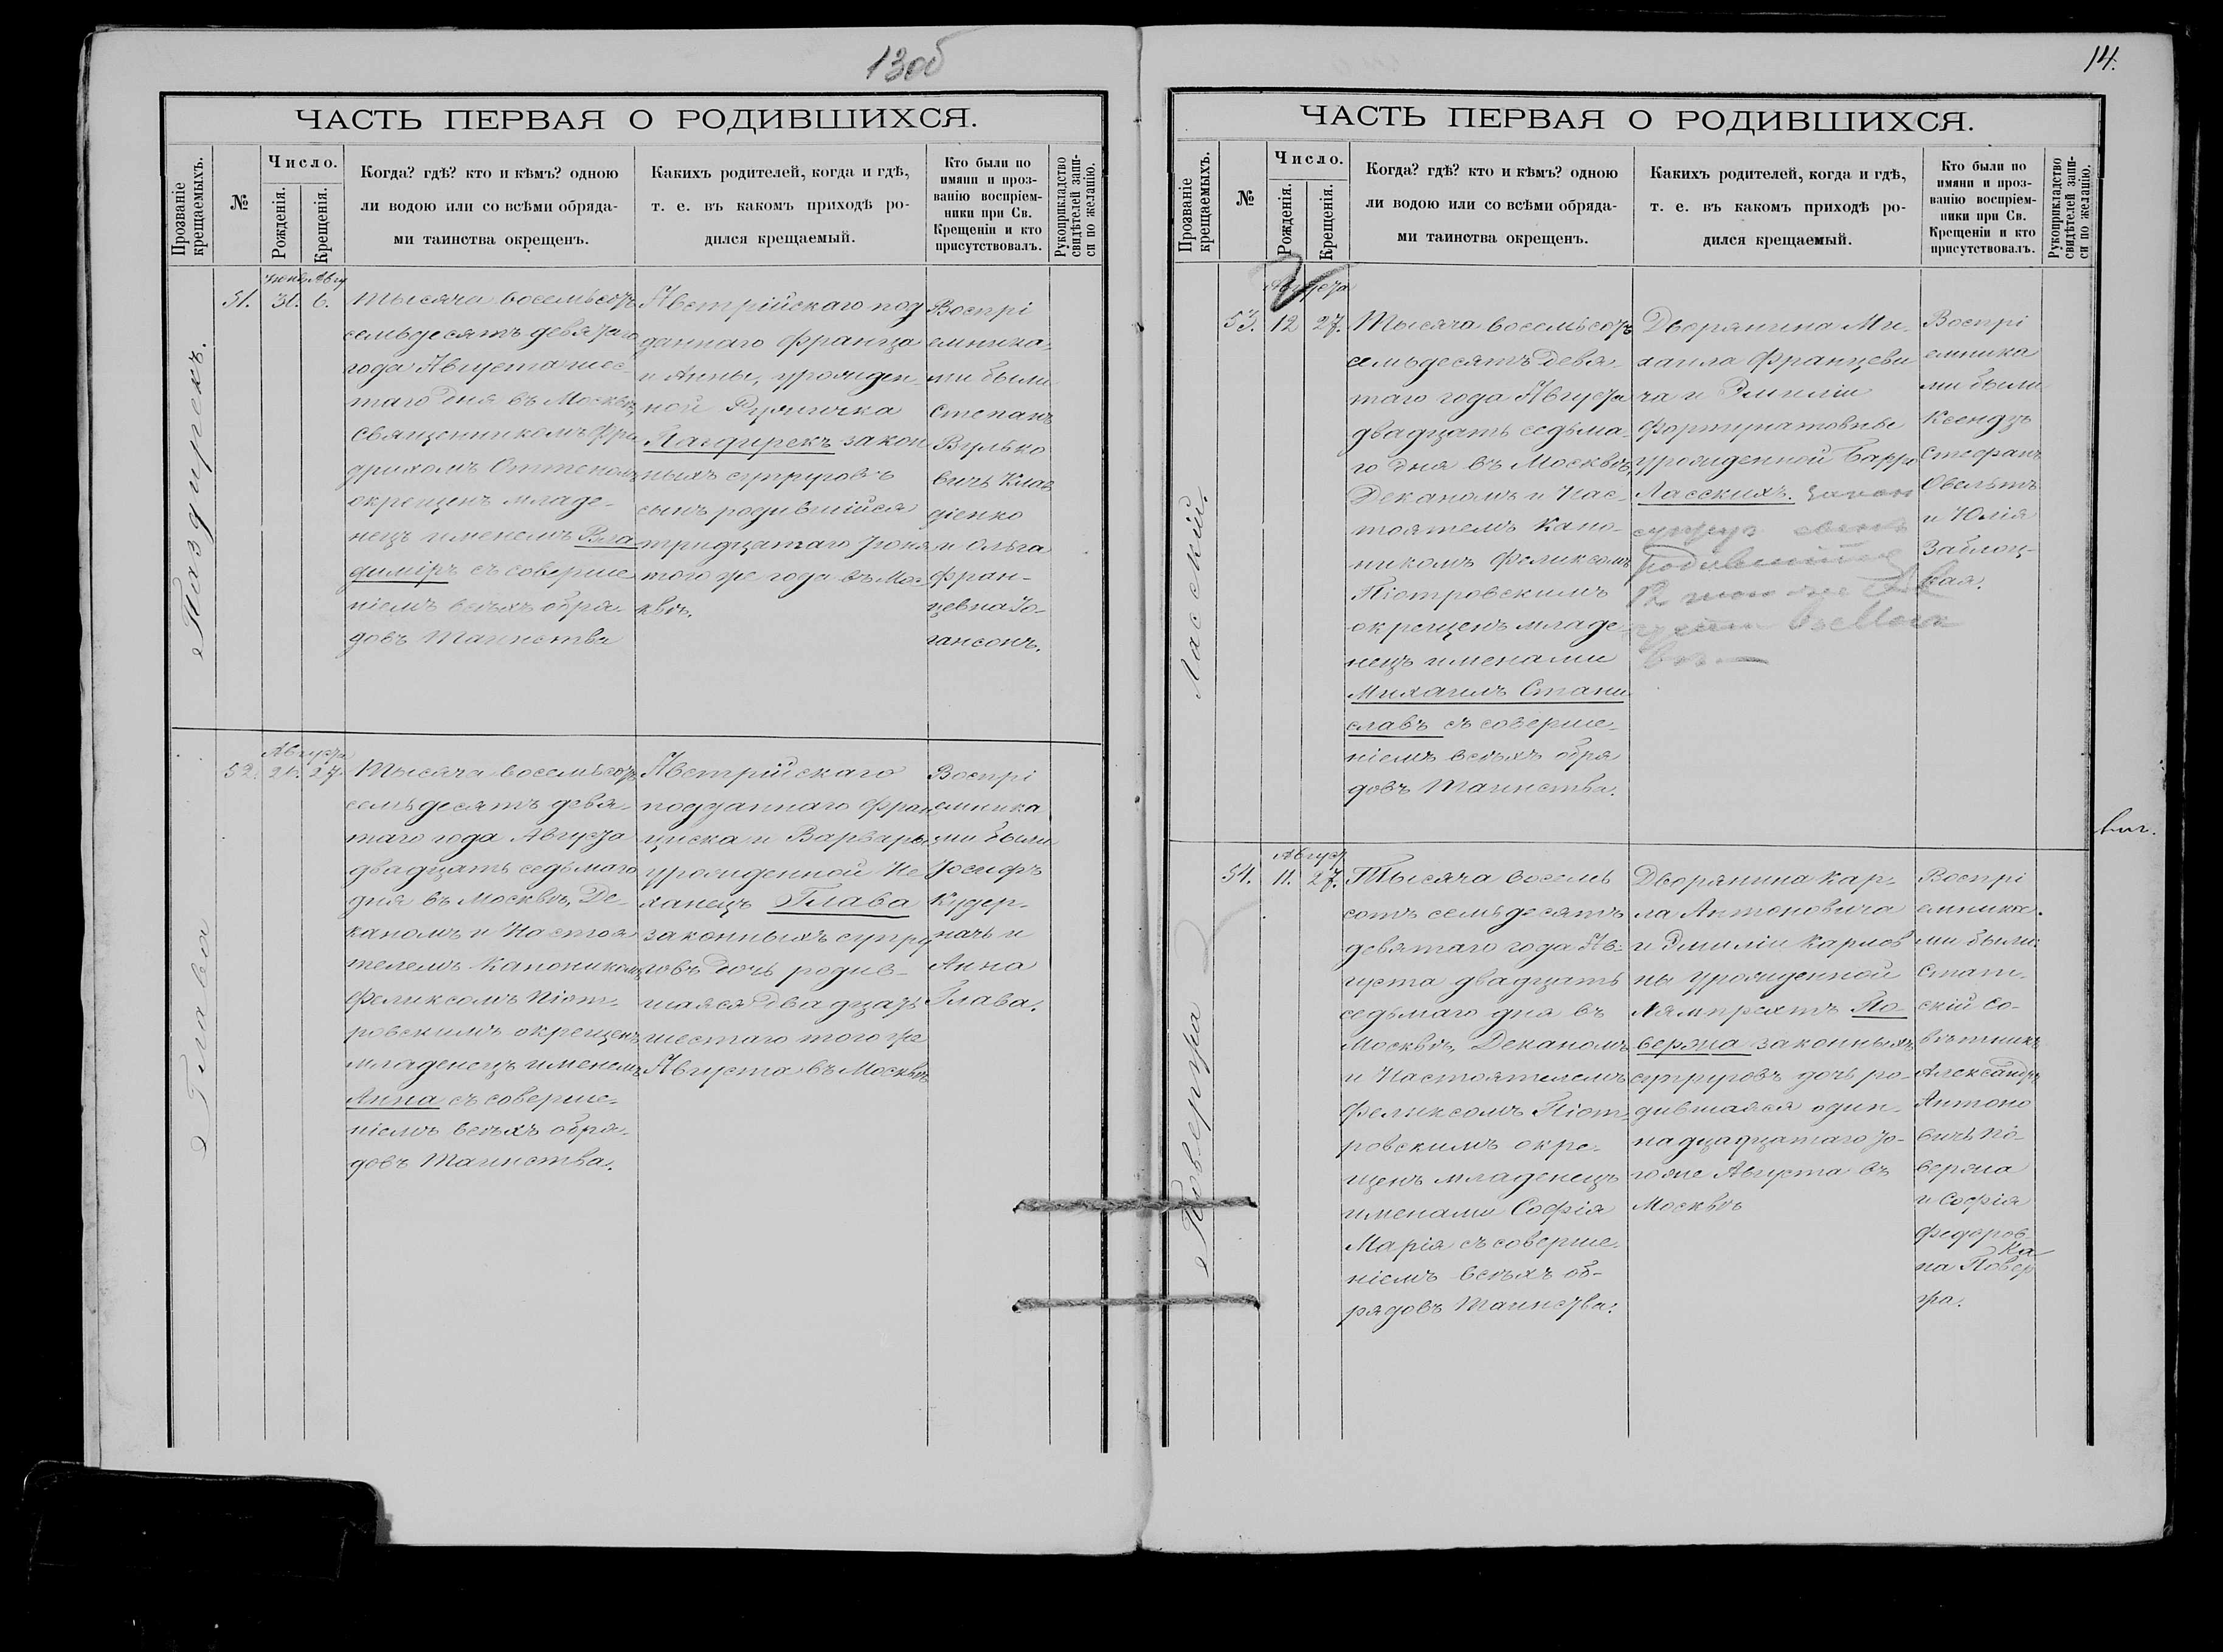 13 об
ЧАСТЬ ПЕРВАЯ О РОДИВШИХСЯ.
Прозваніе крещаемыхъ.
№
Число.
Рожденія.
Крещенія.
Когда? гдѣ? кто и кѣмъ? одною
ли водою или со всѣми обряда-
ми таинства окрещенъ.
Какихъ родителей, когда и гдѣ,
т. е. въ какомъ приходѣ ро-
дился крещаемый.
Кто были по
имяни и проз-
ванію воспріем-
ники при Св.
Крещеніи и кто
присутствовалъ.
Рукоприкладство
свидѣтелей запи-
си по желанію.
Паздирекъ.
51.
Авгу
6.
Тысяча восемьсотъ
семьдесятъ девятаго
года Августа шес-
таго дня въ Москвѣ,
священникомъ
Оттеномъ
окрещенъ младе-
нецъ именемъ Вла
диміръ съ соверше
ніемъ всѣхъ обря-
довъ Таинства
Австрійскаго под
даннаго Франца
и Анны, урожден-
ной Ружичка
Паздирекъ закон
ныхъ супруговъ
сынъ родившійся
тридцатаго Іюня
того же года въ Мос
квѣ.
Воспрі
емника-
ми были
Степанъ
Вулько
вичъ Клав
діенко
и Ольга
Фран-
цевна Іо-
гансонъ.
Глава
52.
Августа
26. 27.
Тысяча восемьсотъ
семьдесятъ девя-
таго года Августа
двадцать седьмаго
дня въ Москвѣ, Де-
каномъ и Настоя
телемъ Каноникомъ
Феликсомъ Піот-
ровскимъ окрещенъ
младенецъ именемъ
Анна съ соверше-
ніемъ всѣхъ обря-
довъ Таинства.
Австрійскаго
подданнаго Фран
циска и Варвары
урожденной Не
ханецъ Глава
законныхъ супру
говъ дочь родив-
шаяся двадцать
шестаго того же
Августа въ Москвѣ
Воспрі
емника
ми были
Іосифъ
Кудер-
начъ и
Анна
Глава.
14.
ЧАСТЬ ПЕРВАЯ О РОДИВШИХСЯ.
Прозваніе крещаемыхъ.
№
Число.
Рожденія.
Крещенія.
Когда? гдѣ? кто и кѣмъ? одною
ли водою или со всѣми обряда-
ми таинства окрещенъ.
Какихъ родителей, когда и гдѣ,
т. е. въ какомъ приходѣ ро-
дился крещаемый.
Кто были по
имяни и проз-
ванію воспріем-
ники при Св.
Крещеніи и кто
присутствовалъ.
Рукоприкладство
свидѣтелей запи-
си по желанію.
Ласскій.
53.
Августа
12 27.
Тысяча восемьсотъ
семьдесятъ девя-
таго года Августа
двадцать седьма-
го дня въ Москвѣ,
Деканомъ и Нас-
тоятелемъ Кано-
никомъ Феликсомъ
Піотровскимъ
окрещенъ младе-
нецъ именами
Михаилъ Стани
славъ съ соверше-
ніемъ всѣхъ обря
довъ Таинства.
Дворянина Ми-
хаила Францеви
ча и Эмиліи
Фортунатовны
урожденной Барро
Ласскихъ. закон
супруг сынъ
родившійся
12 того же Ав
густа въ Моск
вѣ —
Воспрі
емника
ми были
Ксендзъ
Стефанъ
Овельтъ
и Юлія
Заблоц-
кая.
Повержа
54.
Август
11. 27.
Тысяча восемь
сотъ семьдесятъ
девятаго года Ав-
густа двадцать
седьмаго дня въ
Москвѣ, Деканомъ
и Настоятелемъ
Феликсомъ Піот-
ровскимъ окре-
щенъ младенецъ
именами Софія
Марія съ соверше-
ніемъ всѣхъ об-
рядовъ Таинства.
Дворянина Кар-
ла Антоновича
и Эмиліи Карлов
ны урожденной
Лямпрехтъ По-
вержа законныхъ
супруговъ дочь ро-
дившаяся один-
надцадцатаго то-
гоже Августа въ
Москвѣ
Воспрі
емника-
ми были:
Стат-
скій Со-
вѣтникъ
Александръ
Антоно
вичъ По-
вержа
и Софія
Федоров
на Повер
жа.